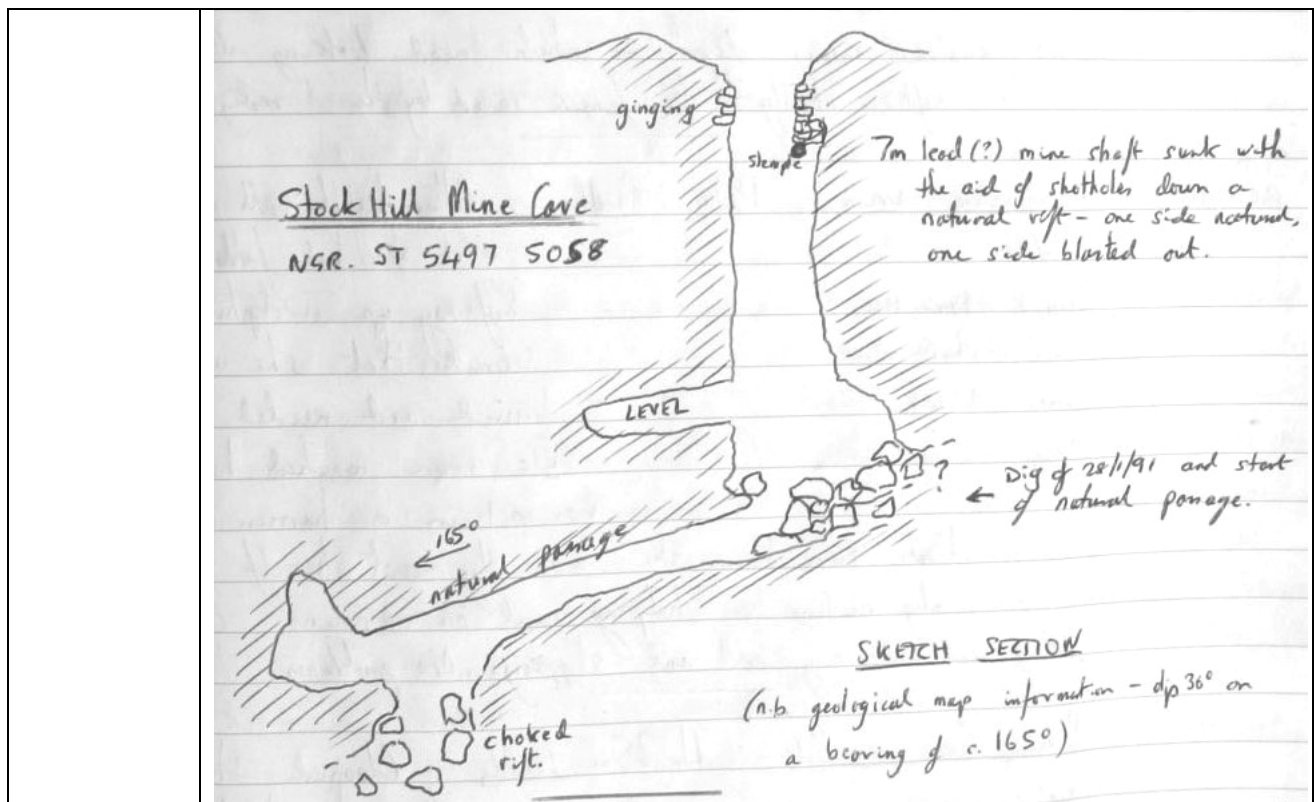 ginging
stemple
7m lead (?) mine shaft sunk with
the aid of shotholes down a
natural rift - one side natural,
one side blasted out.
Stock Hill Mine Cave
NGR. ST 5497 5058
LEVEL
?
← Dig of 28/1/91 and start
of natural passage.
165°
natural passage
SKETCH SECTION
(n.b. geological map information - dip 36° on
a bearing of c. 165°)
choked
rift.